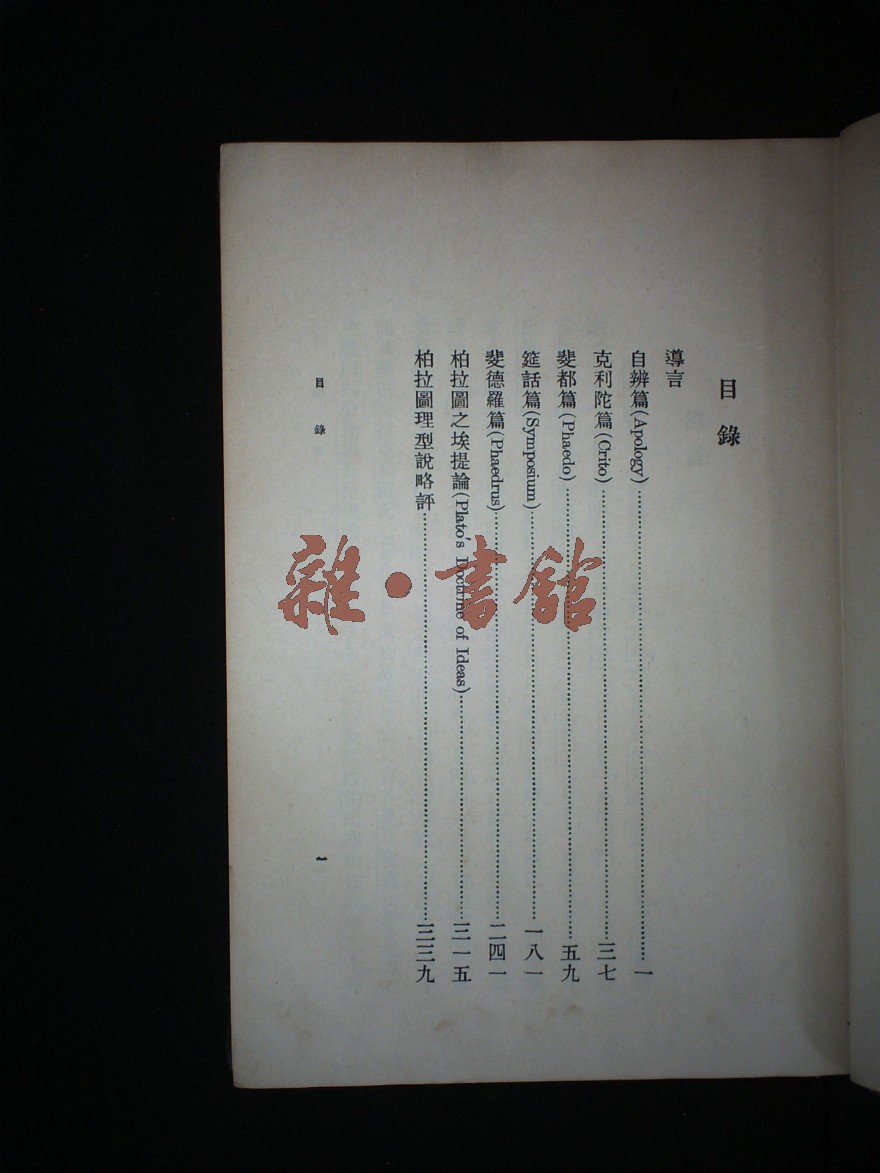 目錄
導言
自辨篇(Apology)……一
克利陀篇(Crito)……三七
斐都篇(Phaedo)……五九
筵話篇(Symposium)……一八一
斐德羅篇(Phaedrus)……二四一
柏拉圖之埃提論(Plato's Doctrine of Ideas)……三一五
柏拉圖理型說略評……三三九
目錄
一
雜·書館